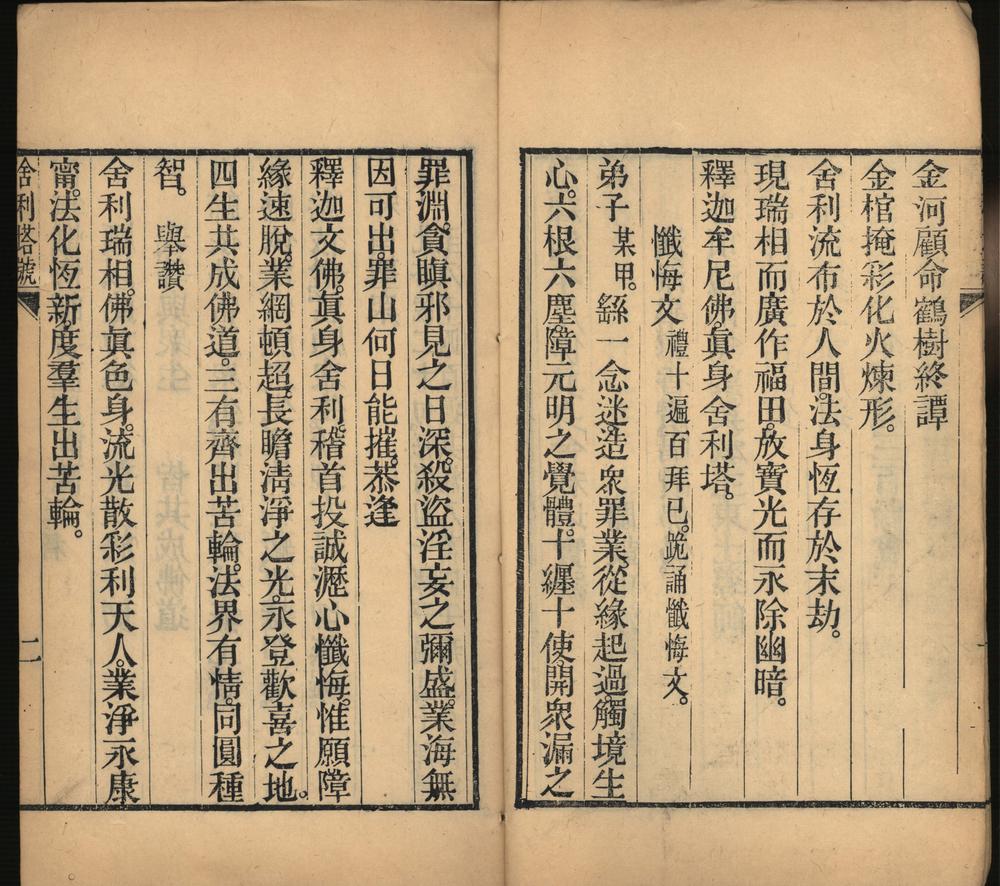 金河顧命鶴樹終譚
金棺掩彩化火煉形。
舍利流布於人間。法身恆存於末劫。
現瑞相而廣作福田。放寶光而永除幽暗。
釋迦牟尼佛。眞身舍利塔。
懺悔文 禮十遍百拜已。跪誦懺悔文。
弟子 某甲。繇一念迷。造眾罪業。從緣起過。觸境生
心。六根六塵。障元明之覺體。十纏十使。開眾漏之
罪淵。貪瞋邪見之日深。殺盜淫妄之彌盛。業海無
因可出。罪山何日能摧。恭逢
釋迦文佛。眞身舍利。稽首投誠。瀝心懺悔。惟願障
緣速脫。業網頓超。長瞻淸淨之光。永登歡喜之地。
四生共成佛道。三有齊出苦輪。法界有情。同圓種
智。 舉讚
舍利瑞相。佛眞色身。流光散彩利天人。業淨永康
甯。法化恆新。度羣生出苦輪。
舍利塔號 二